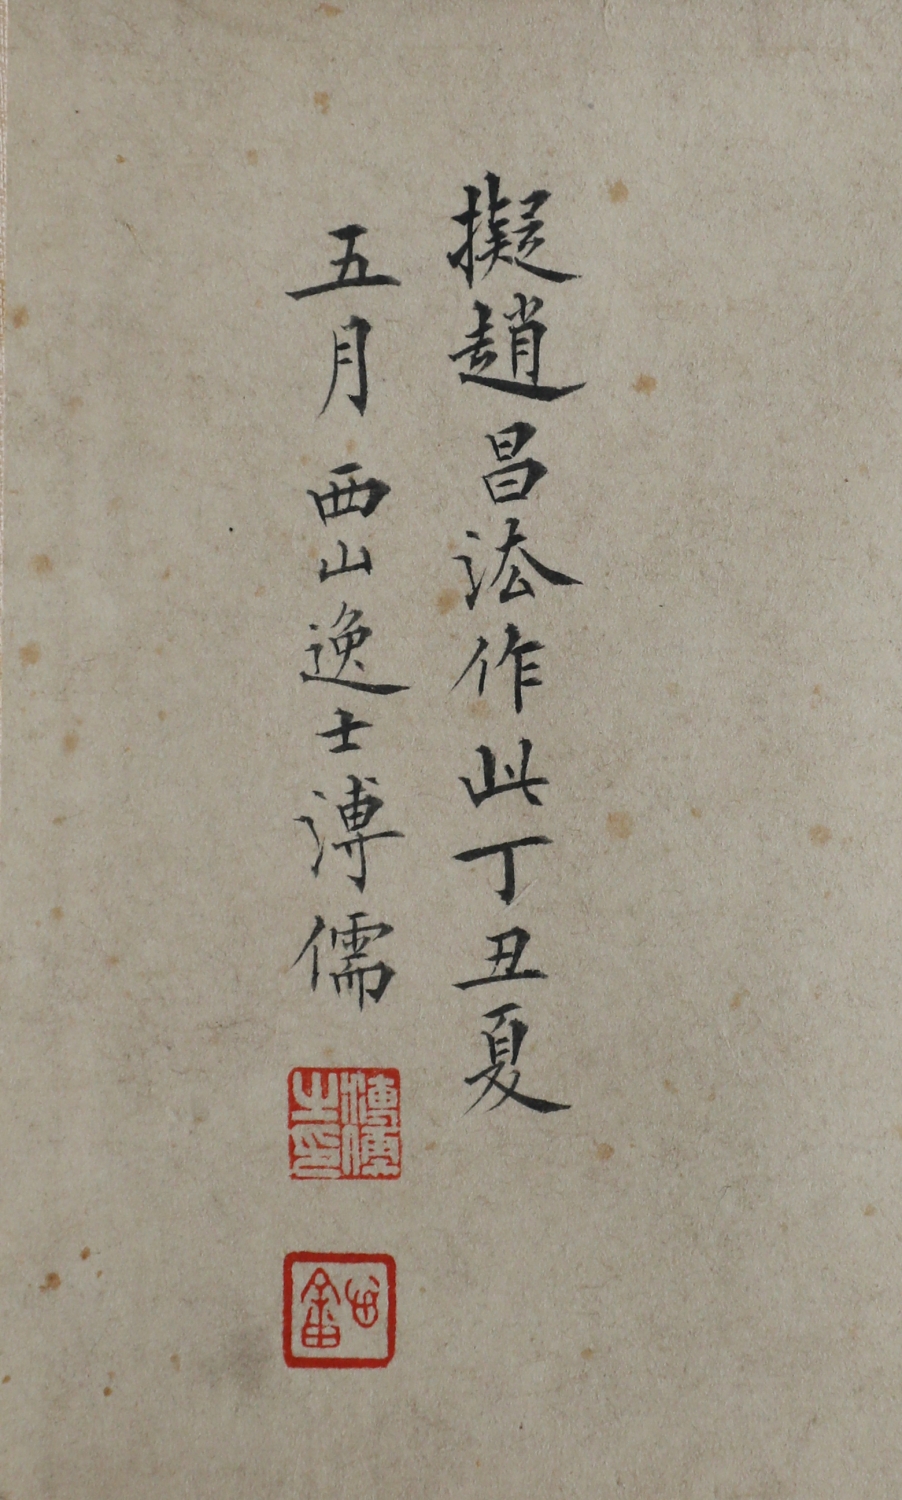 擬趙昌法作此丁丑夏
五月西山逸士溥儒
溥儒之印
甘畬